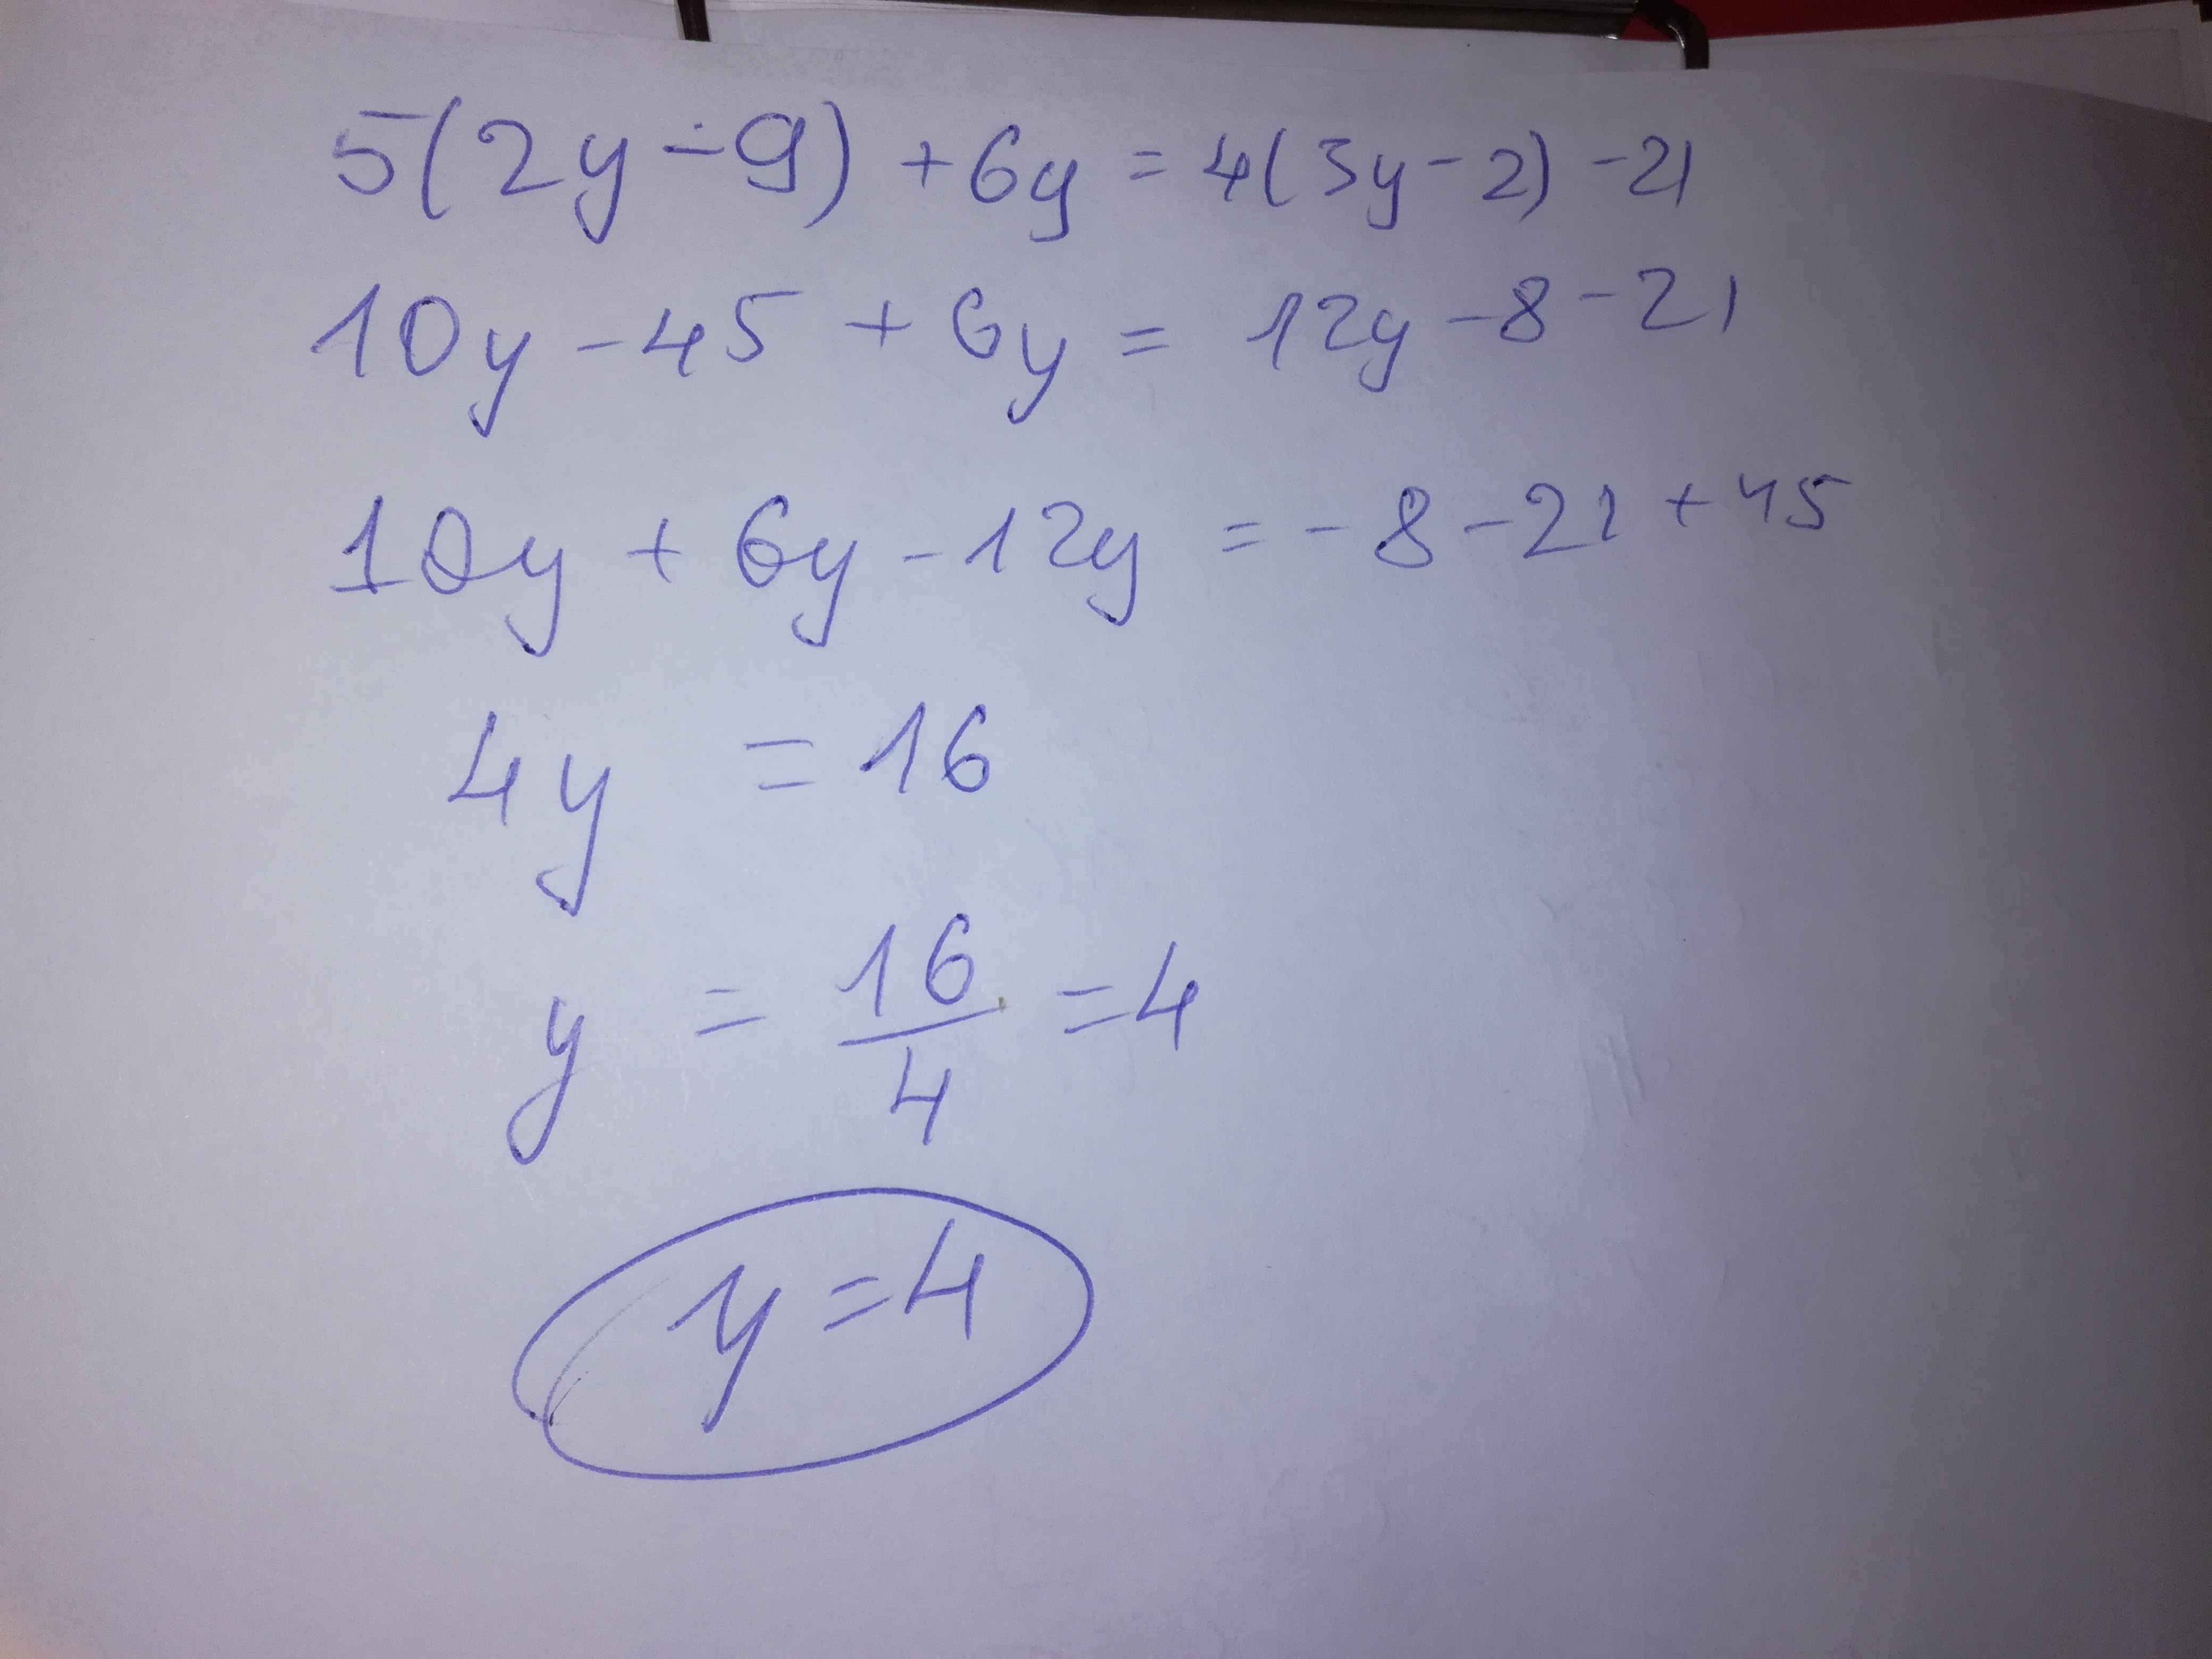 5(2y-9) +6y = 4(3y-2) -21
10y -45 + 6y = 12y -8 -21
10y + 6y -12y = -8 -21 +45
4y = 16
y = 16/4 = 4
y = 4